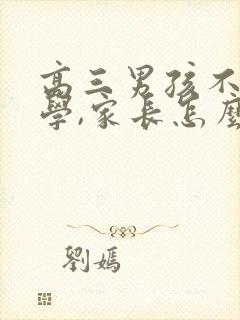 高三男孩不
學,家長怎麼
劉媽